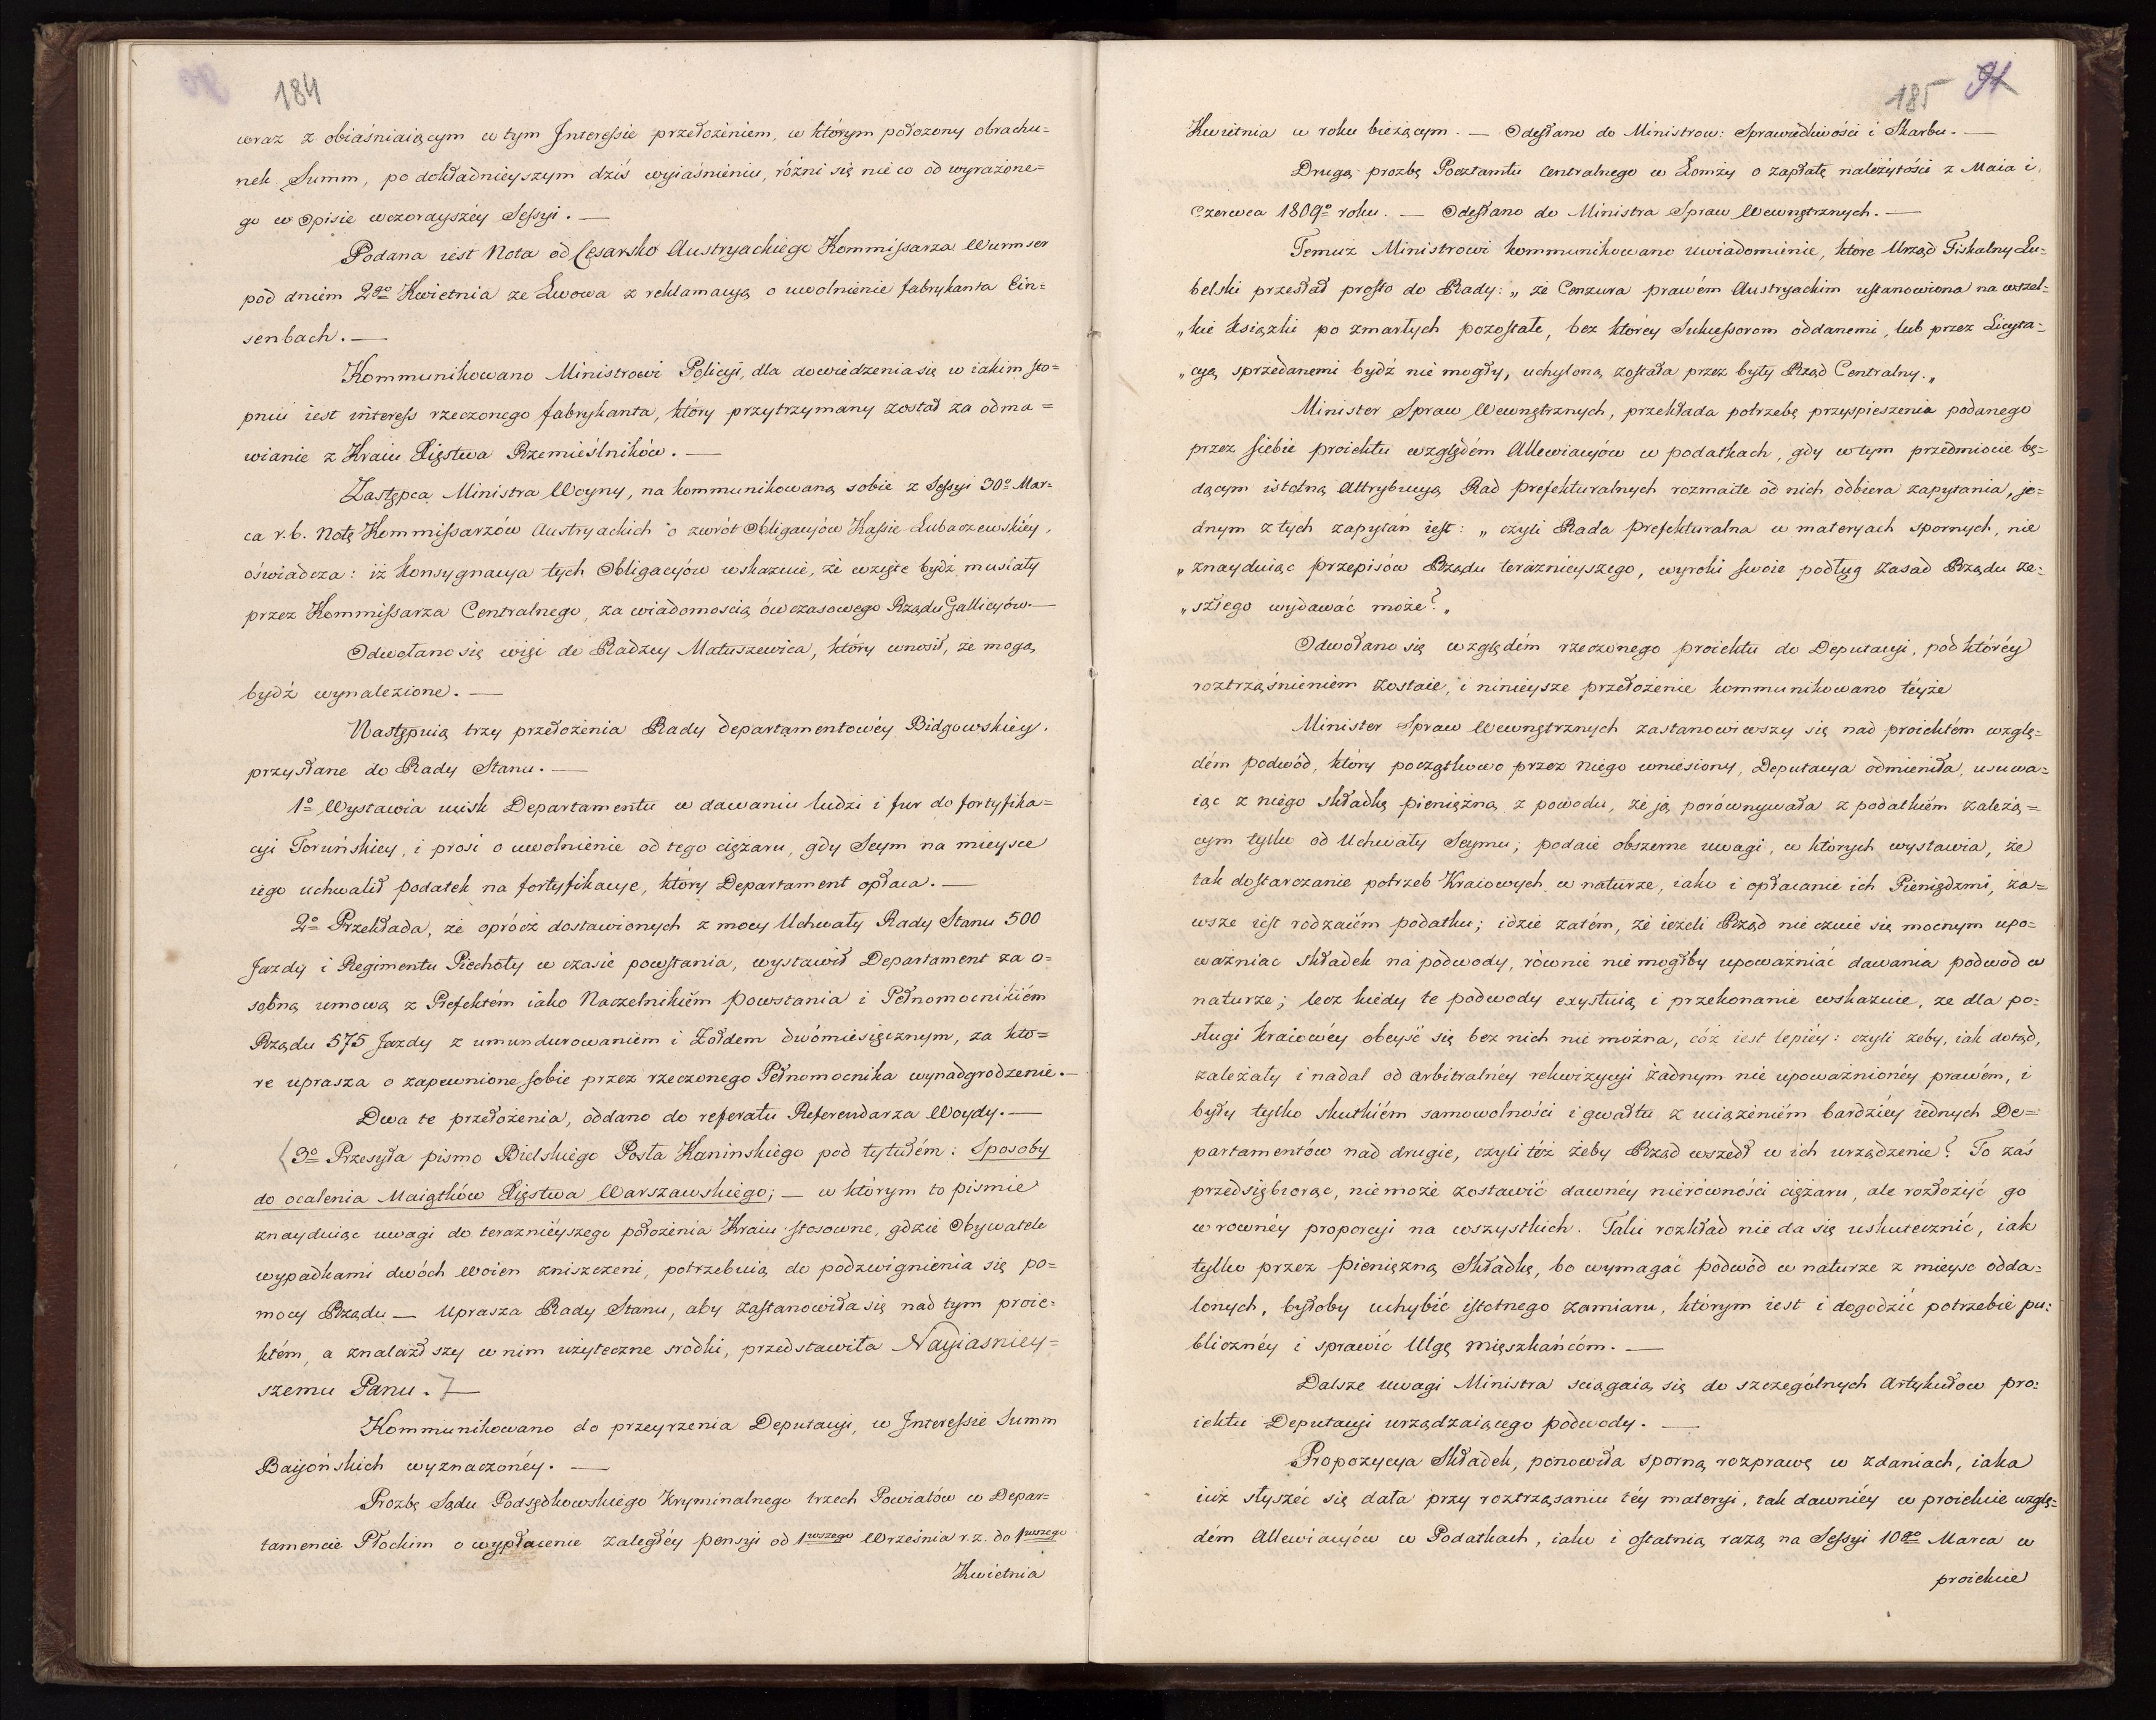 184
wraz z obiaśniaiącym w tym Interessie przełożeniem, w którym położony obrachu=
nek Summ, po dokładnieyszym dziś wyiaśnieniu, różni się nieco od wyrażone=
go w Opisie wczorayszéy Sessyi. —
Podana iest Nota od Cesarsko Austryackiego Kommissarza Wurmser
pod dniem 2go Kwietnia ze Lwowa z reklamacyą o uwolnienie fabrykanta Ein=
senbach. —
Kommunikowano Ministrowi Policyi, dla dowiedzenia się w iakim sto=
pniu iest interess rzeczonego fabrykanta, który przytrzymany został za odma=
wianie z Kraiu Xięstwa Rzemieślników. —
Zastępca Ministra Woyny, na kommunikowaną sobie z Sessyi 30o Mar=
ca r. b. Notę Kommissarzów Austryackich o zwrót Obligacyów Kassie Lubaczewskiéy,
oświadcza: iż Konsygnacya tych Obligacyów wskazuie, że wzięte bydź musiały
przez Kommissarza Centralnego, za wiadomością ówczasowego Rządu Gallicyów. —
Odwołano się więc do Radzcy Matuszewica, który wnosił, że mogą
bydź wynalezione. —
Następuią trzy przełożenia Rady departamentowéy Bidgowskiey.
przysłane do Rady Stanu. —
1o Wystawia ucisk Departamentu w dawaniu ludzi i fur do fortyfika=
cyi Toruńskiey, i prosi o uwolnienie od tego ciężaru, gdy Seym na mieysce
iego uchwalił podatek na fortyfikacye, który Departament opłaca. —
2o Przekłada, że oprócz dostawionych z mocy Uchwały Rady Stanu 500
Jazdy i Regimentu Piechoty w czasie powstania, wystawił Departament za o=
sobną umową z Prefektém iako Naczelnikiém powstania i Pełnomocnikiém
Rządu 575 Jazdy z umundurowaniem i Żołdem dwómiesięcznym, za któ=
re uprasza o zapewnione sobie przez rzeczonego Pełnomocnika wynadgrodzenie. —
Dwa te przełożenia, oddano do referatu Referendarza Woydy. —
3o Przesyła pismo Bielskiego Posła Kaninskiego pod tytułém: Sposoby
do ocalenia Maiątków Xięstwa Warszawskiego; — w którym to pismie
znayduiąc uwagi do teraznieyszego położenia Kraiu stosowne, gdzie Obywatele
wypadkami dwóch Woien zniszczeni, potrzebuią do podzwignienia się po=
mocy Rządu — Uprasza Rady Stanu, aby zastanowiła się nad tym proie=
ktém, a znalazłszy w nim użyteczne srodki, przedstawiła Nayiasniey=
szemu Panu. —
Kommunikowano do przeyrzenia Deputacyi, w Interessie Summ
Baijońskich wyznaczonéy. —
Prozbę Sądu Podsędkowskiego Kryminalnego trzech Powiatów w Depar=
tamencie Płockim o wypłacenie zaległéy pensyi od 1wszego Września r. z. do 1wszego
Kwietnia
185 91
Kwietnia w roku bieżącym. — Odesłano do Ministrow: Sprawiedliwości i Skarbu. —
Drugą prozbę Pocztamtu Centralnego w Łomży o zapłatę należytości z Maia i
Czerwca 1809o roku. — Odesłano do Ministra Spraw Wewnętrznych. —
Temuż Ministrowi kommunikowano uwiadomienie, które Urząd Fiskalny Lu=
belski przesłał prosto do Rady: „ że Cenzura prawém Austryackim ustanowiona na wszel=
„ kie książki po zmarłych pozostałe, bez któréy Sukcessorom oddanemi, lub przez Licyta=
„ cyą sprzedanemi bydź nie mogły, uchyloną została przez były Rząd Centralny. „
Minister Spraw Wewnętrznych, przekłada potrzebę przyspieszenia podanego
przez siebie proiektu względém Allewiacyów w podatkach, gdy w tym przedmiocie bę=
dącym istotną Attrybucyą Rad prefekturalnych rozmaite od nich odbiera zapytania, je=
dnym z tych zapytań iest: „ czyli Rada prefekturalna w materyach spornych, nie
„ znayduiąc przepisów Rządu teraznieyszego, wyroki swoie podług zasad Rządu ze=
„ szłego wydawać może? „
Odwołano się względém rzeczonego proiektu do Deputacyi, pod któréy
roztrząśnieniem zostaie, i ninieysze przełożenie kommunikowano téyże
Minister Spraw Wewnętrznych zastanowiwszy się nad proiektém wzglę=
dém podwód, który początkowo przez niego wniesiony, Deputacya odmieniła, usuwa=
iąc z niego składkę pieniężną z powodu, że ją porównywała z podatkiém zależą=
cym tylko od Uchwały Seymu; podaie obszerne uwagi, w których wystawia, że
tak dostarczanie potrzeb Kraiowych w naturze, iako i opłacanie ich Pieniędzmi, za=
wsze iest rodzaiém podatku; idzie zatém, że ieżeli Rząd nie czuie się mocnym upo=
ważniac składek na podwody, równie nie mógłby upoważniać dawania podwod w
naturze; lecz kiedy te podwody exystuią i przekonanie wskazuie, ze dla po=
sługi Kraiowéy obeysć się bez nich nie można, cóż iest lepiéy: czyli zeby, iak dotąd,
zależały i nadal od arbitralnéy rekwizycyi żadnym nie upoważnionéy prawém, i
były tylko skutkiém samowolności i gwałtu z uciążeniém bardziéy iednych De=
partamentów nad drugie, czyli téż żeby Rząd wszedł w ich urządzenie? To zaś
przedsiębiorąc, nie może zostawić dawnéy nierówności ciężaru, ale rozłożyć go
w rownéy proporcyi na wszystkich. Taki rozkład nie da się uskutecznić, iak
tylko przez pieniężną Składkę, bo wymagać podwód w naturze z mieysc odda=
lonych, byłoby uchybić istotnego zamiaru, którym iest i dogodzić potrzebie pu=
blicznéy i sprawić Ulgę mięszkańcóm. —
Dalsze uwagi Ministra sciągaią się do szczególnych Artykułow pro=
iektu Deputacyi urządzaiącego podwody. —
Propozycya Składek, ponowiła sporną rozprawę w zdaniach, iaka
iuż słyszéć się dała przy roztrząsaniu téy materyi, tak dawniéy w proiekcie wzglę=
dém Allewiacyów w Podatkach, iako i ostatnią razą na Sessyi 10go Marca w
proiekcie